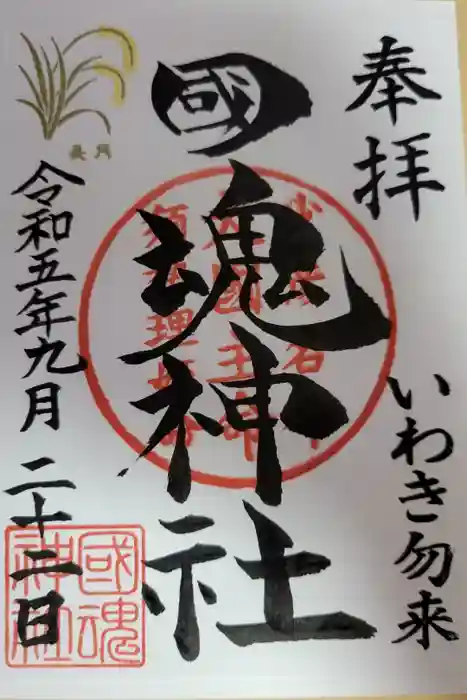 奉拝
いわき勿来
國魂神社
長月
令和五年九月二十二日
國魂
神社